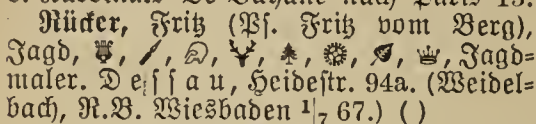 Rücker, Fritz (Ps. Fritz vom Berg),
Jagd, Jagd=
maler. Dessau, Heidestr. 94a. (Weidel=
bach, R.B. Wiesbaden 1/7 67.) ( )